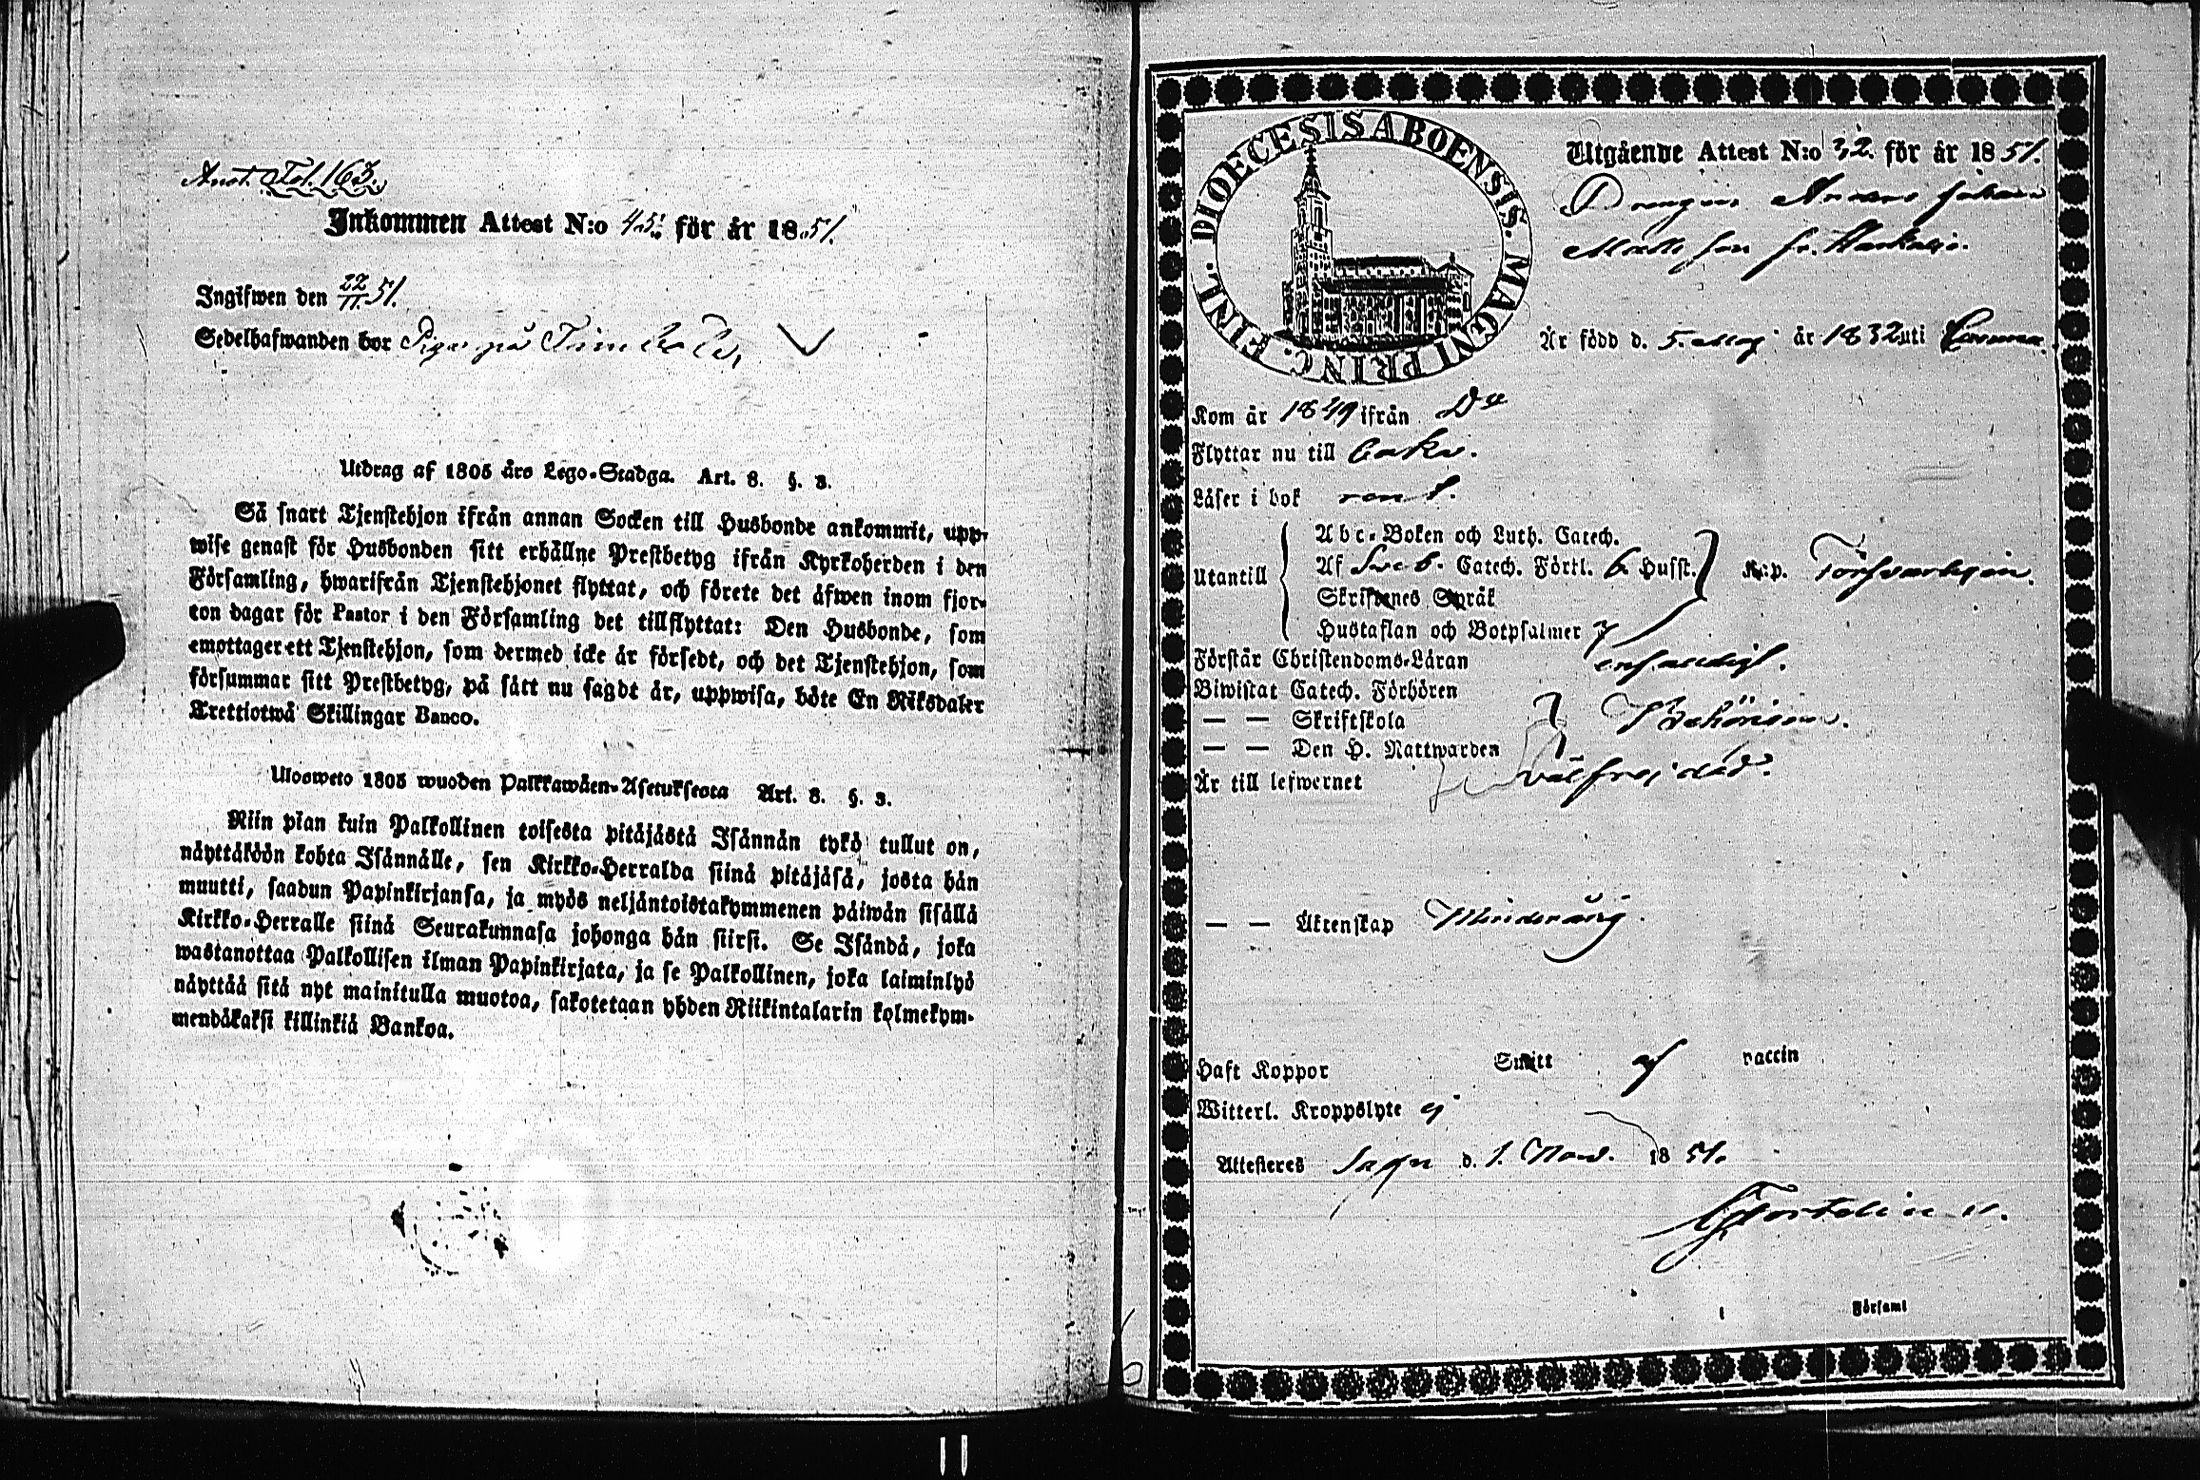 Anot. Fol. 163.
Inkommen Attest N:o 45. för år 1851.
Ingifwen den 22/11 51.
Sedelhafwanden bor Piga på
Utdrag af 1805 års Lego-Stadga. Art. 8. §. 3.
Så snart Tjenstehjon ifrån annan Socken till Husbonde ankommit, upp-
wise genast för Husbonden sitt erhållne Prestbetyg ifrån Kyrkoherden i den
Församling, hwarifrån Tjenstehjonet flyttat, och förete det äfwen inom fjor-
ton dagar för Pastor i den Församling det tillflyttat: Den Husbonde, som
emottager ett Tjenstehjon, som dermed icke är försedt, och det Tjenstehjon, som
försummar sitt Prestbetyg, på sätt nu sagdt är, uppwisa, böte En Riksdaler
Trettiotwå Skillingar Banco.
Ulosweto 1805 wuoden Palkkawäen-Asetuksesta Art. 8. §. 3.
Niin pian kuin Palkollinen toisesta pitäjästä Isännän tykö tullut on,
näyttäköön kohta Isännälle, sen Kirkko-Herralda siinä pitäjäsä, josta hän
muutti, saadun Papinkirjansa, ja myös neljäntoistakymmenen päiwän sisällä
Kirkko-Herralle siinä Seurakunnasa johonga hän siirsi. Se Isändä, joka
wastanottaa Palkollisen ilman Papinkirjata, ja se Palkollinen, joka laiminlyö
näyttää sitä nyt mainitulla muotoa, sakotetaan yhden Riikintalarin kolmekym-
mendäkaksi killinkiä Bankoa.
DIOECESIS ABOENSIS. MAGNI PRINC. FINL.
Utgående Attest N:o 32. för år 1851.
Drengen Anders Johan
Matts son fr.
Är född d. 5. Maj år 1832 uti
Kom år 1849 ifrån Do
Flyttar nu till
Läser i bok rent.
Utantill
Abc-Boken och Luth. Catech.
Af Sveb. Catech. Förkl. 6 Hufst. K:p. Försvarligen.
Skriftenes Språk
Hustaflan och Botpsalmer 7
Förstår Christendoms-Läran enfaldigt.
Biwistat Catech. Förhören
— — Skriftskola Behörigen.
— — Den H. Nattwarden
Är till lefwernet välfrejdad.
— — Äktenskap Minderårig.
Haft Koppor Smitt af vaccin
Witterl. Kroppslyte ej
Attesteres d. 1. Nov. 1851.
Församl